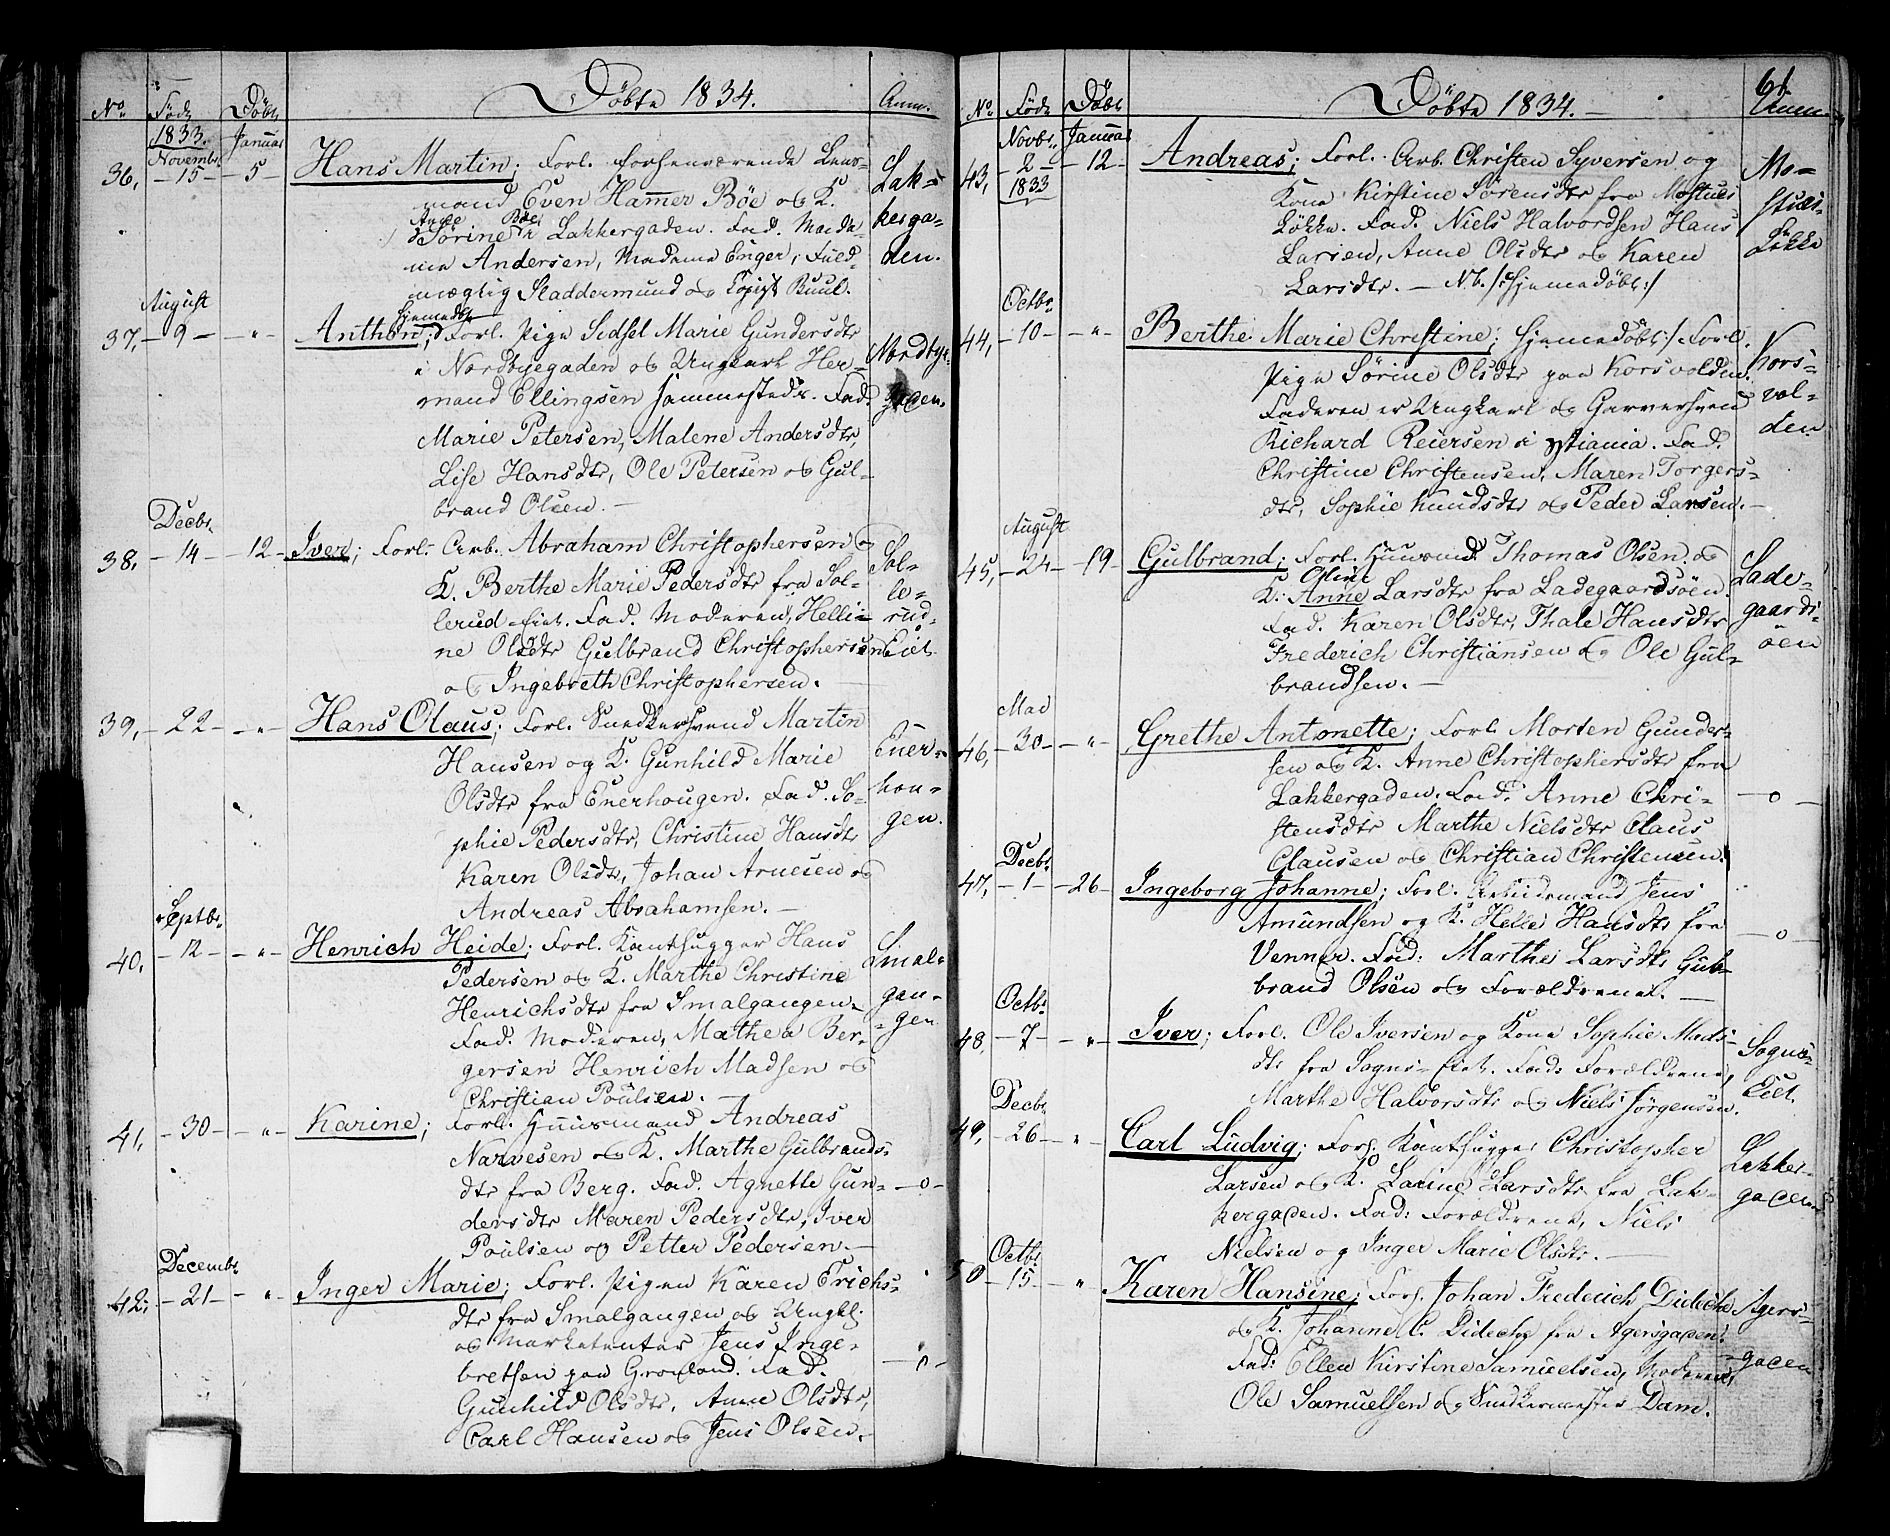 Döbte 1834.
No Föd. Döbt Anm.
1833. Januar
Novembr
36, -15- -5 Hans Martin; Forl. forhenværende Lens- Lak-
mand Even Hammer Böe og K. kerga-
Anne Böe
Sörine i Lakkergaden. Fad. Mada- den.
me Andersen, Madame Enger, Fuld-
mægtig Staddermund og Buul.
August
hjemedöbt
37, -9- -"- Anthon; Forl. Pige Sidsel Marie Gundersdtr Nordbye-
i Nordbyegaden og Ungkarl Her- gaden.
mand Ellingsen sammesteds. Fad.
Marie Petersen, Malene Andersdtr,
Lise Hansdtr, Ole Petersen og Gul-
brand Olsen. -
Decbr.
38, -14- -12- Iver; Forl. Arb. Abraham Christophersen og Sol-
K. Berthe Marie Pedersdtr fra Sol- le-
lerud-Eiet. Fad. Moderen, Helli- rud-
ne Olsdtr Gulbrand Christophersen Eiet
og Ingebreth Christophersen. -
39, -22- -"- Hans Olaus; Forl. Snedkersvend Martin
Hansen og K. Gunhild Marie Ener-
Olsdtr fra Enerhougen. Fad. So- hou-
phie Pedersdtr, Christine Hansdtr gen.
Karen Olsdtr, Johan Arnesen og
Andreas Abrahamsen. -
Septbr.
40, -12- -"- Henrich Heide; Forl. Kanthugger Hans Smal-
Pedersen og K. Marthe Christine gan-
Henrichsdtr fra Smalgangen. -gen
Fad. Moderen, Mathea Ber-
gersen Henrich Madsen og
Christian Poulsen. -
41, -30- -"- Karine; Forl. Huusmand Andreas
Narvesen og K. Marthe Gulbrands-
dtr fra Berg. Fad. Agnette Gun- -o-
dersdtr Maren Pedersdtr, Iver
Poulsen og Petter Pedersen. -
Decembr.
42, -21- -"- Inger Marie; Forl. Pigen Karen Erichs-
dtr fra Smalgangen og Ungkl.
og Marketenter Jens Inge- -o-
bretsen paa Grönland. Fad.
Gunhild Olsdtr, Anne Olsdtr,
Carl Hansen og Jens Olsen. -
61
Döbte 1834. -
No Föd. Döbt Anm.
Novbr. Januar
43, -2- -12- Andreas; Forl. Arb. Christen Syversen og Mo-
1833 Kone Kirstine Sörensdtr fra Mostues stues-
Lökke. Fad. Niels Halvordsen Hans Lökke
Larsen, Anne Olsdtr og Karen
Larsdtr. - Nb. /:Hjemedöbt:/
Octbr
44, -10- -"- Berthe Marie Christine; Hjemedöbt:/ Forl.
Pige Sörine Olsdtr paa Korsvolden. Kors-
Faderen er Ungkarl og Garversvend vol-
Richard Reiersen i Xstiania. Fad. den
Christine Christensen, Maren Torgers-
dtr, Sophie Knudsdtr og Peder Larsen. -
August
45, -24- -19- Gulbrand; Forl. Huusmd. Thomas Olsen og Lade-
Oline
K. Anne Larsdtr fra Ladegaardsöen. gaards-
Fad. Karen Olsdtr, Thale Hansdtr öen
Frederich Christiansen og Ole Gul-
brandsen. -
Mai
46, -30- -"- Grethe Antonette; Forl. Morten Gunder-
sen og K. Anne Christophersdtr fra
Lakkergaden. Fad. Anne Chri- -o-
stensdtr Marthe Nielsdtr Claus
Clausen og Christian Christensen.
Decbr.
47, -1- -26- Ingeborg Johanne; Forl. Arbeidsmand Jens
Amundsen og K. Helle Hansdtr fra -o-
Venner. Fad: Marthe Larsdtr Gul-
brand Olsen og Forældrene. -
Octbr.
48, -7- -"- Iver; Forl. Ole Iversen og Kone Sophie Mads-
dtr fra Sogns-Eiet. Fad: Forældrene, Sogns-
Marthe Halvorsdtr og Niels Jörgensen. Eiet.
Decbr.
49, -26- -"- Carl Ludvig; For. Kanthugger Christopher Lakker-
Larsen og K. Larine Larsdtr fra Lak- gaden
kergaden. Fad: Forældrene, Niels
Nielsen og Inger Marie Olsdtr. -
Octbr.
50 -15- " Karen Hansine; For. Johan Frederich Didechs Agers-
og K. Johanne C. Didechs fra Agersgaden. -gaden
Fad: Ellen Kirstine Samuelsen, Moderen,
Ole Samuelsen og Snedkermester Dam.